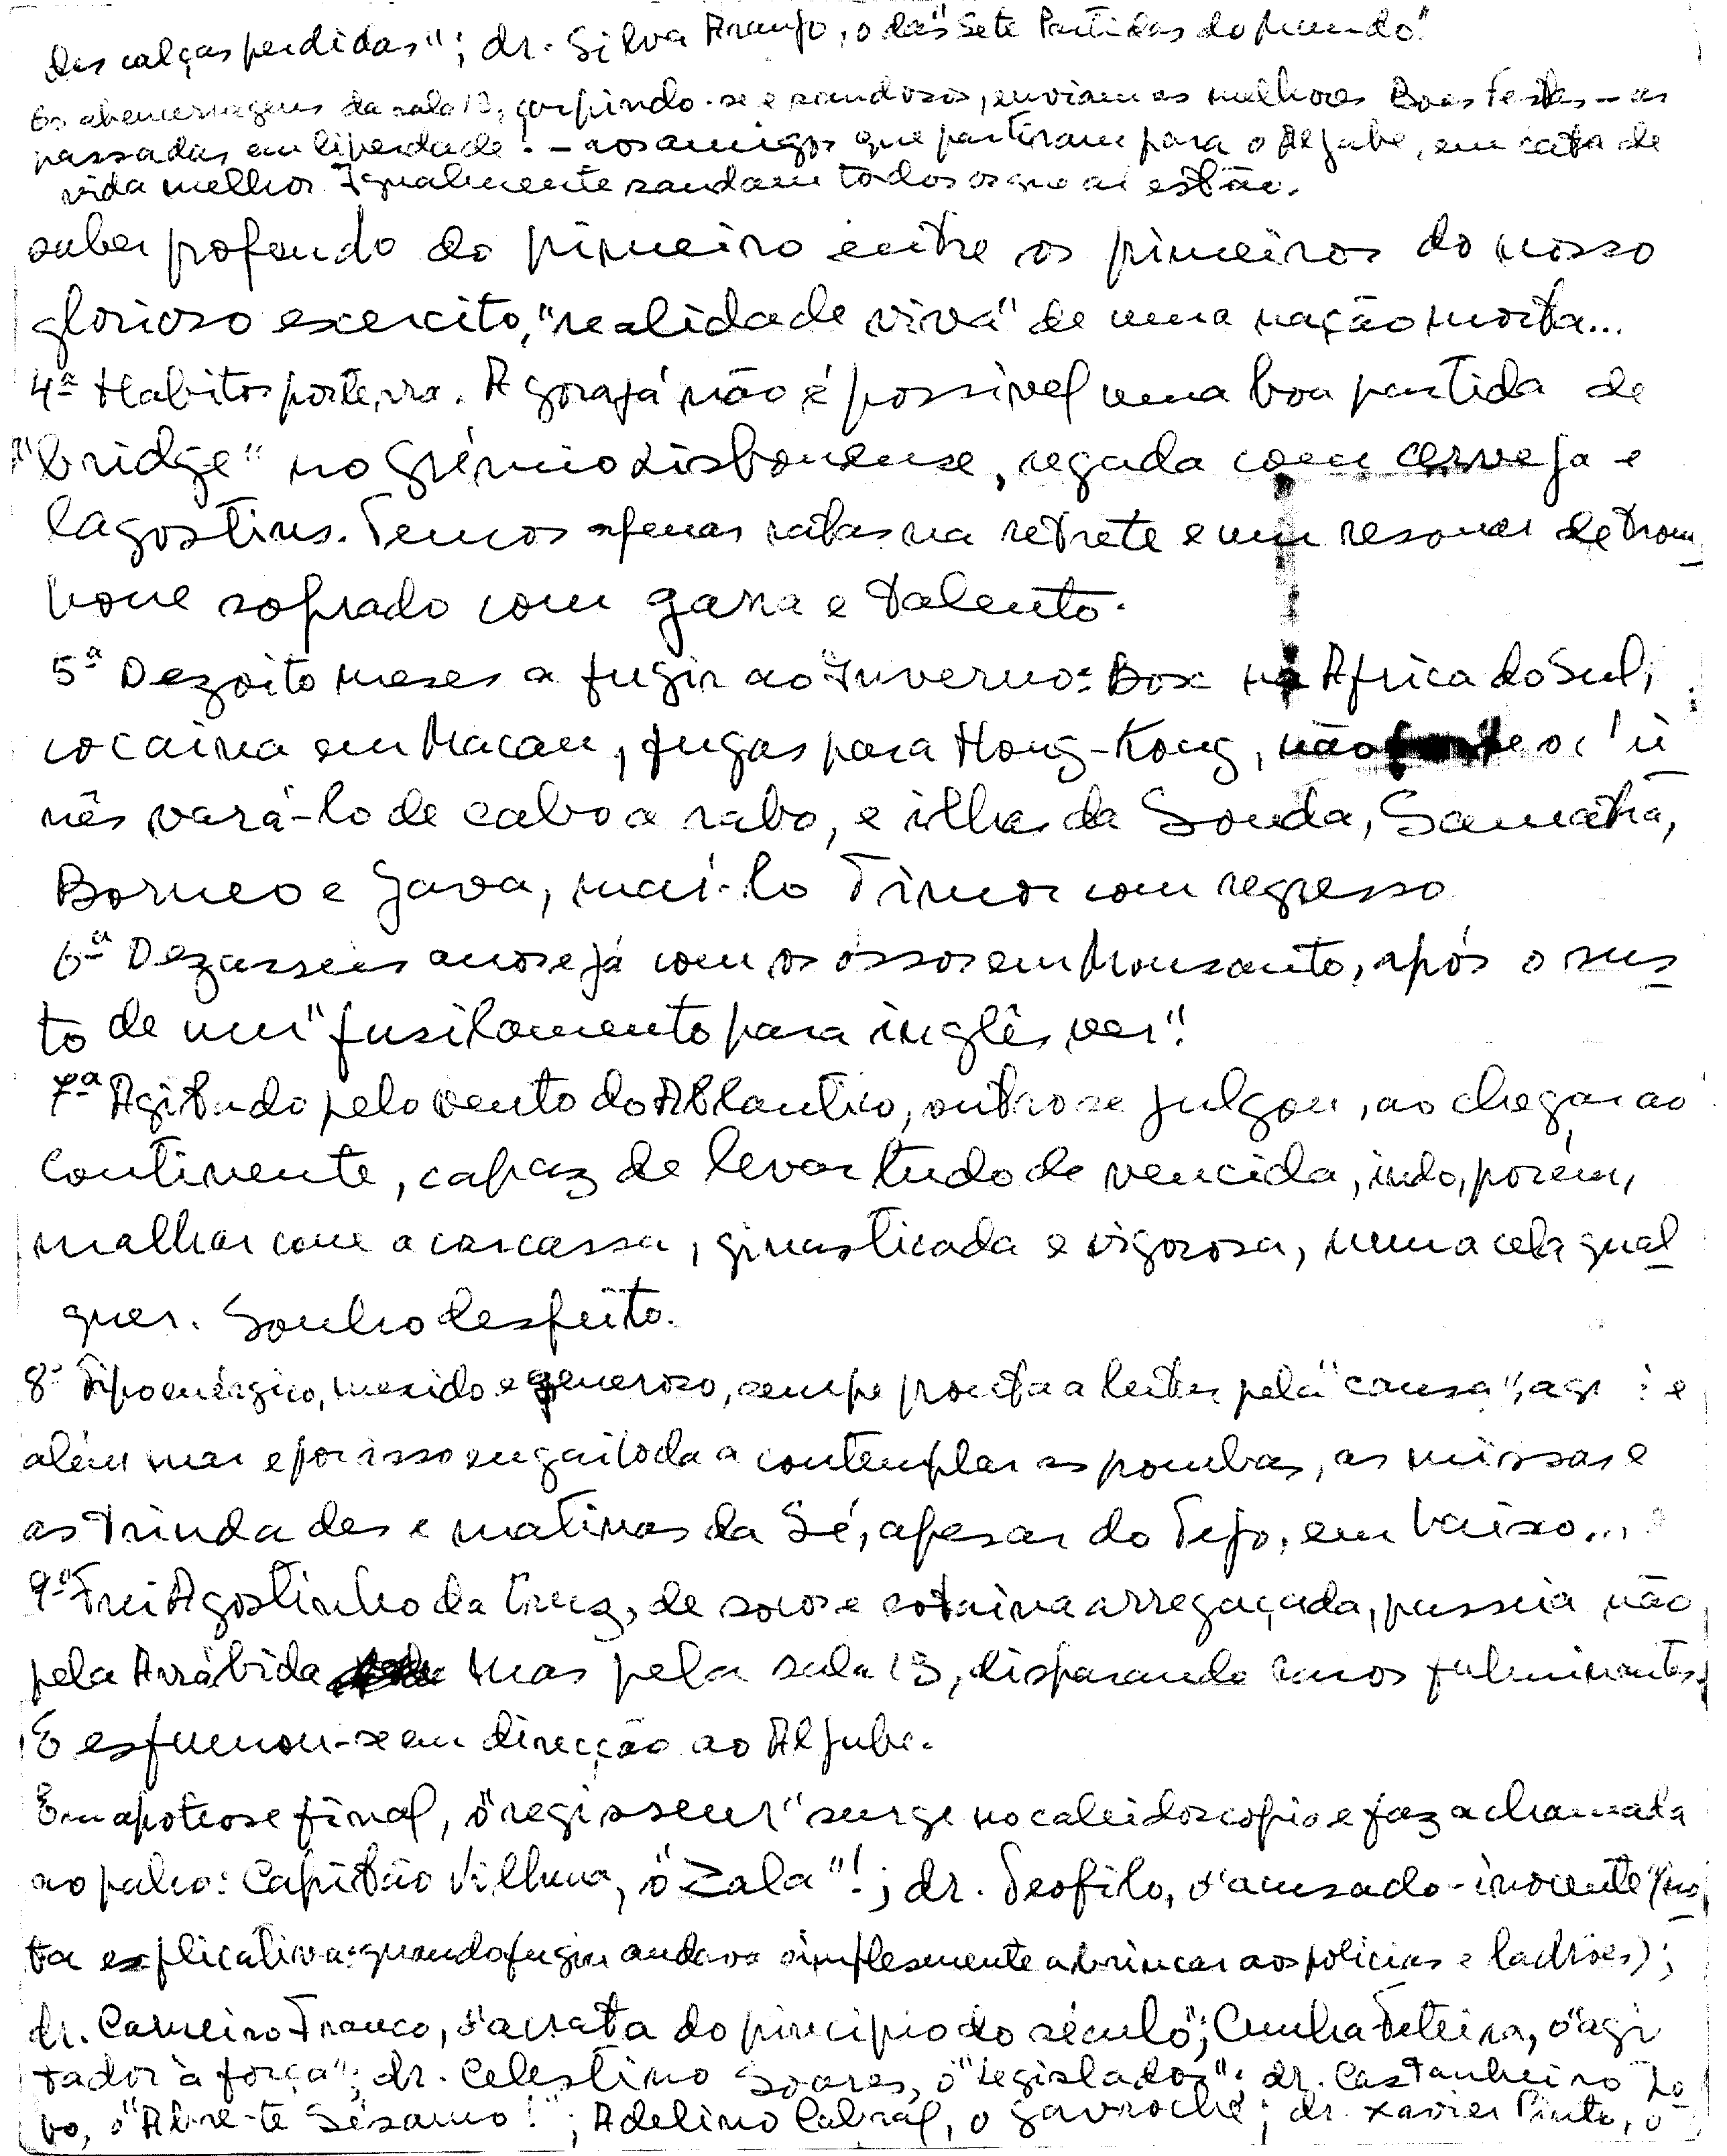 das calças perdidas"; dr. Silva Araujo, o das "Sete Partidas do Mundo".
Os abencerragens da sala 13, carpindo-se e saudosos, enviam as melhores Boas Festas – as
passadas em liberdade! – aos amigos que partiram para o Aljube, em cata de
vida melhor. Igualmente saudam todos os que aí estão.
saber profundo do primeiro entre os primeiros do nosso
glorioso exercito, "realidade viva" de uma nação morta...
4ª Habitos por terra. Agora já não é possivel uma boa partida de
"bridge" no Grémio Lisbonense, regada com cerveja e
lagostins. Temos apenas ratas na retrete e um resonar de trom
bone soprado com garra e talento.
5ª Dezoito meses a fugir ao Inverno: Box na Africa do Sul,
cocaina em Macau, fugas para Hong-Kong, não
nês vará-lo de cabo a rabo, e ilhas da Sonda, Samatra,
Borneo e Java, mai-lo Timor com regresso
6ª Dezasseis anos e já com os ossos em Monsanto, após o sus
to de um "fusilamento para inglês ver".
7ª Agitado pelo vento do Atlantico, outro se julgou, ao chegar ao
Continente, capaz de levar tudo de vencida, indo, porém,
malhar com a carcassa, ginasticada e vigorosa, numa cela qual
quer. Sonho desfeito.
8ª Tipo enérgico, mexido e generoso, sempre pronta a pela "causa",
além mar e por isso engaiolada a contemplar as pombas, as missas e
as trindades e matinas da Sé, apesar do Tejo, em baixo...
9ª Frei Agostinho da Cruz, de socos e sotaina arregaçada, passeia não
pela Arrábida mas pela sala 13, disparando raios fulminantes.
E esfumou-se em direcção ao Aljube.
Em apoteose final, o "regisseur" surge no caleidoscopio e faz a chamada
ao palco: Capitão Vilhena, o "Zala"!; dr. Teofilo, o "acusado-inocente" (no
ta explicativa: quando fugiu andava simplesmente a brincar aos policias e ladrões);
dr. Carneiro Franco, o "acrata do principio do século"; Cunha Feteira, o "agi
tador à força"; dr. Celestino Soares, o "legislador"; dr. Castanheiro Lo
bo, o "Abre-te Sésamo!"; Adelino Cabral, o gavroche; dr. Xavier Pinto, o